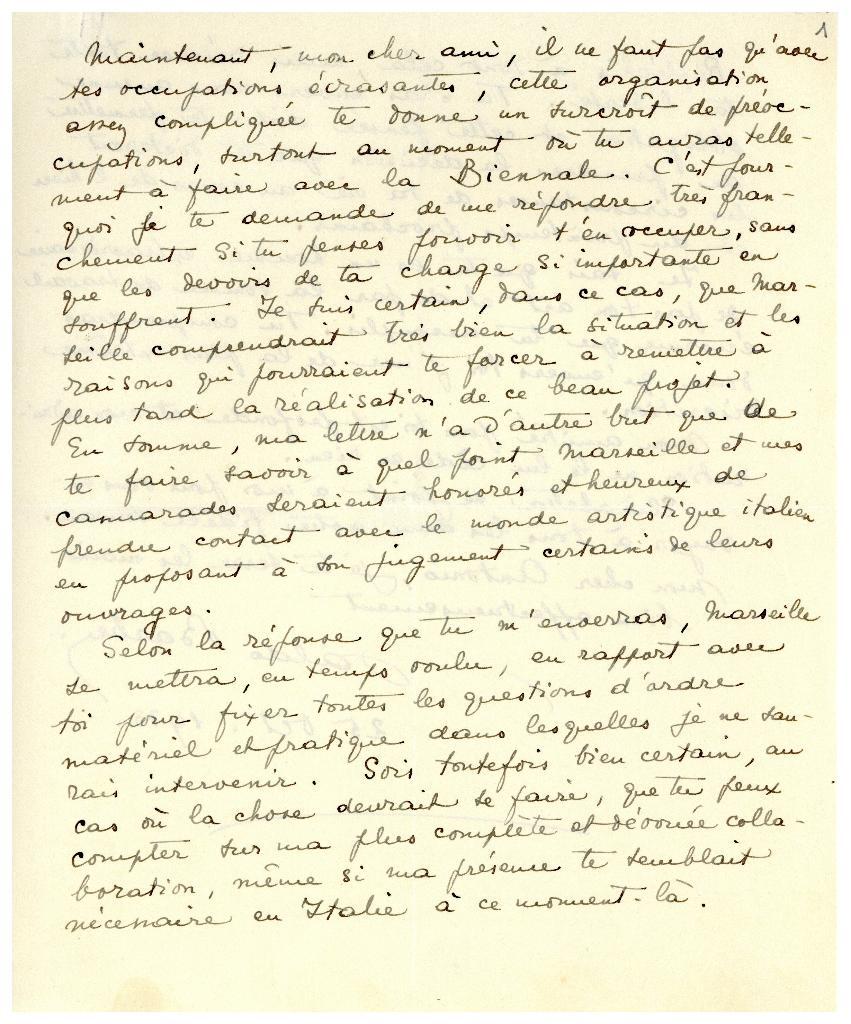 1
Maintenant, mon cher ami, il ne faut pas qu'avec
tes occupations écrasantes, cette organisation
assez compliquée te donne un surcroît de préoc-
cupations, surtout au moment où tu auras telle-
ment à faire avec la Biennale. C'est pour-
quoi je te demande de me répondre très fran-
chement si tu penses pouvoir t'en occuper, sans
que les devoirs de ta charge si importante en
souffrent. Je suis certain, dans ce cas, que Mar-
seille comprendrait très bien la situation et les
raisons qui pourraient te forcer à remettre à
plus tard la réalisation de ce beau projet.
En somme, ma lettre n'a d'autre but que de
te faire savoir à quel point Marseille et mes
camarades seraient honorés et heureux de
prendre contact avec le monde artistique italien
en proposant à son jugement certains de leurs
ouvrages.
Selon la réponse que tu m'enverras, Marseille
se mettra, en temps voulu, en rapport avec
toi pour fixer toutes les questions d'ordre
matériel et pratique dans lesquelles je ne sau-
rais intervenir. Sois toutefois bien certain, au
cas où la chose devrait se faire, que tu peux
compter sur ma plus complète et dévouée colla-
boration, même si ma présence te semblait
nécessaire en Italie à ce moment-là.